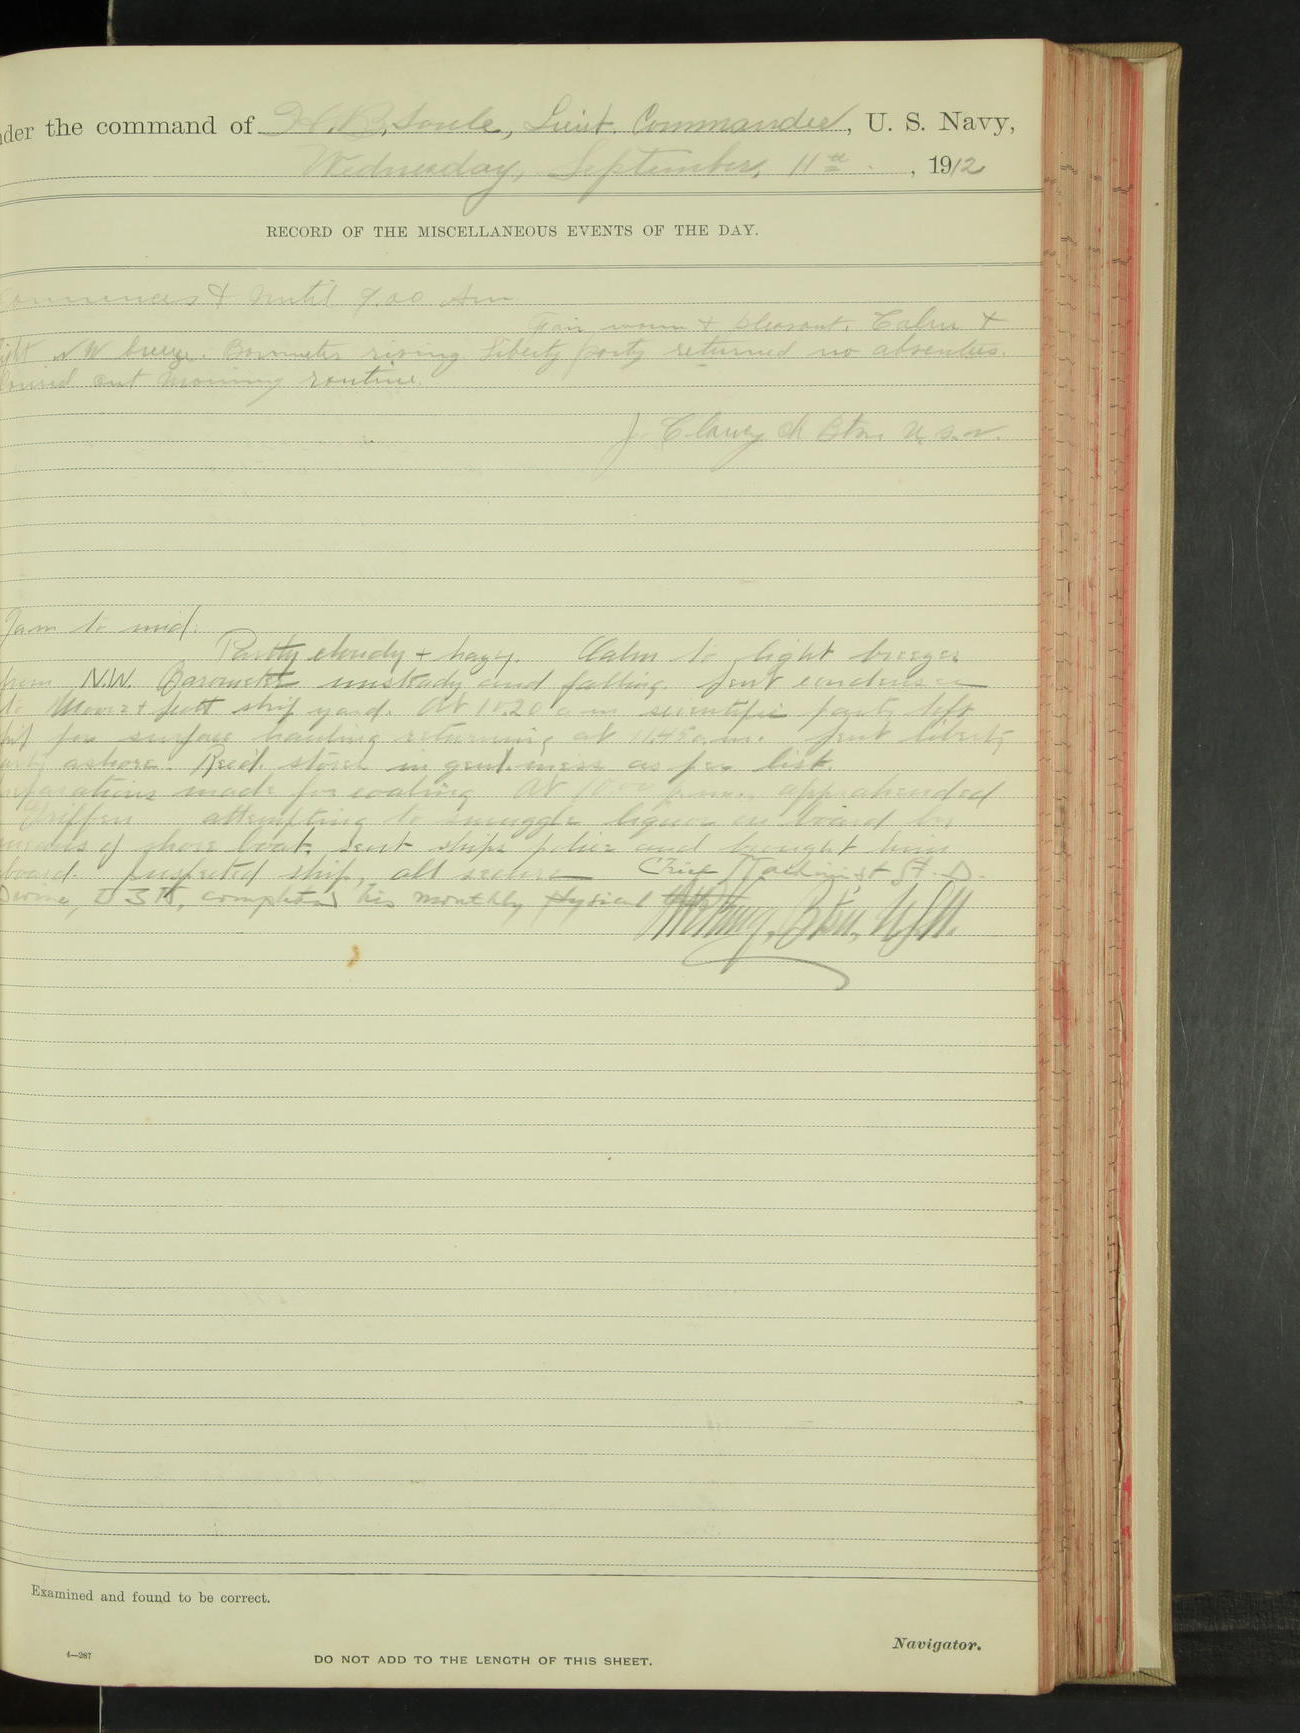 nder the command of H. B. Soule, Lieut. Commander, U. S. Navy,
Wednesday, September, 11th, 1912
RECORD OF THE MISCELLANEOUS EVENTS OF THE DAY.
Commences & Until 9.00 Am
Fair warm & pleasant. Calm &
ight NW breeze. Barometer rising. Liberty party returned no absentees.
out Morning routine.
J. Clancy Ch Btn. U.S.N.
9 am to mid.
Partly cloudy + hazy. Calm to light breezes
from N.W. Barometer unsteady and falling. Sent condenser
to Moore & Scott ship yard. At 10.20 a m scientific party left
for surface hauling returning at 11.45 a.m. Sent liberty
arty ashore. Rec'd. stores in genl. mess as per list.
eparations made for coaling. At 10.00 p.m., apprehended
Griffen attempting to smuggle liquor on board by
means of shore boat. Sent ships police and brought him
board. Inspected ship, all secure. Chief Machinist St. D.
Devine, U S N, completed his monthly physical test
Btsn, USN.
Examined and found to be correct.
Navigator.
4—287
DO NOT ADD TO THE LENGTH OF THIS SHEET.